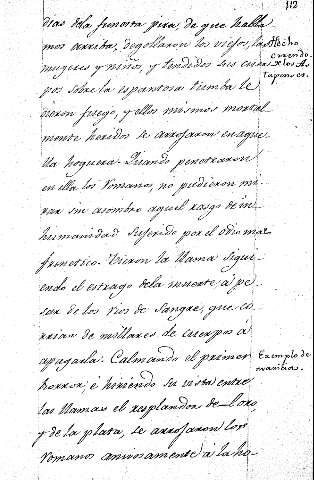 112
dias de la funesta pira, de que habla-
mos arriba, degollaron los viejos, las
mugeres y niños, y tendidos sus cuer-
pos sobre la espantosa tumba le
dieron fuego, y ellos mismos mortal
mente heridos se arrojaron en aque
lla hoguera. Quando penetraron
en ella los Romanos, no pudieron mi
rar sin asombro aquel rasgo de in-
humanidad sugerido por el odio mas
frenetico. Vieron la llama sigui-
endo el estrago de la muerte à pe
sar de los rios de sangre, que co
rrian de millares de cuerpos à
apagarla. Calmando el primer
horror, é hiriendo su vista entre
las llamas el resplandor del oro,
y de la plata, se arrojaron los
Romanos ansiosamente à la ho-
Hecho
orrendo
de los As
tapenses.
Exemplo de
avaricia.